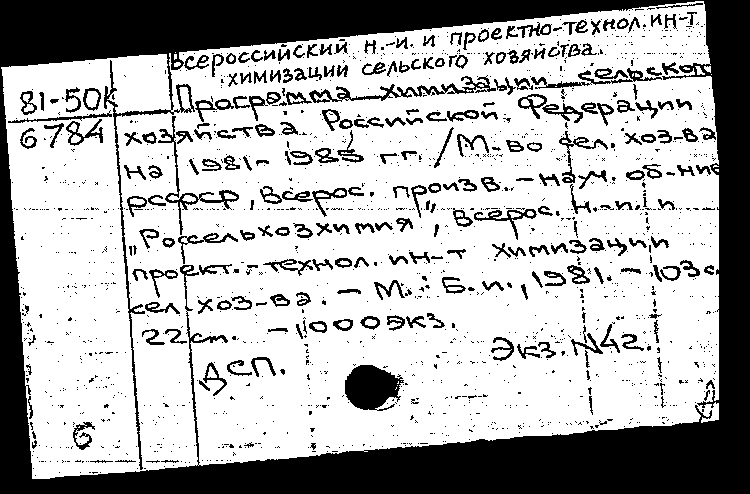 Всероссийский н.-и. и проектно-технол. ин-т
химизации сельского хозяйства.
81-50К Программа химизации сельского
6784 хозяйства Российской Федерации
на 1981-1985 гг. / М-во сел. хоз-ва
РСФСР, Всерос. произв.-науч. об-ние
„Россельхозхимия", Всерос. н.-и. и
проект.-технол. ин-т химизации
сел. хоз-ва. - М.: Б.и., 1981. - 103 с.
22 см. - 1000 экз.
ДСП. Экз. N42.
6